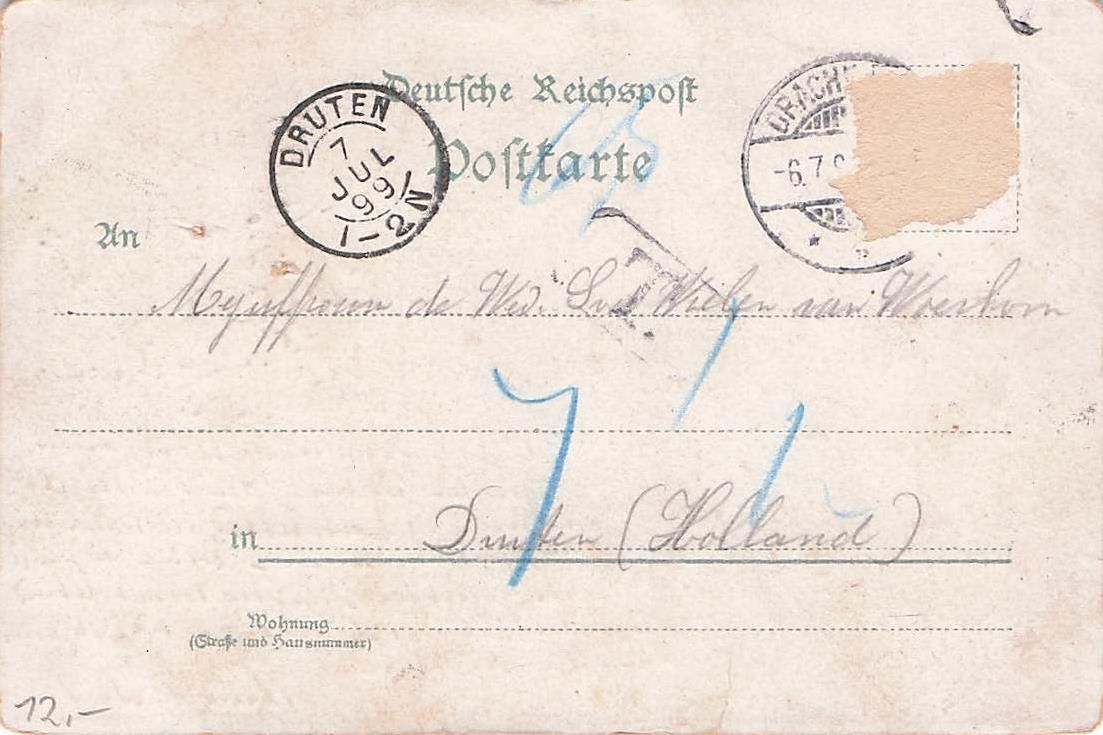 Deutsche Reichspost
Postkarte
DRUTEN
7
JUL
99
1-2N
DRACH
-6.7.9
T.
An
Mejuffrouw de Wed. van Woerkom
in Druten (Holland)
Wohnung
(Straße und Hausnummer)
12,-